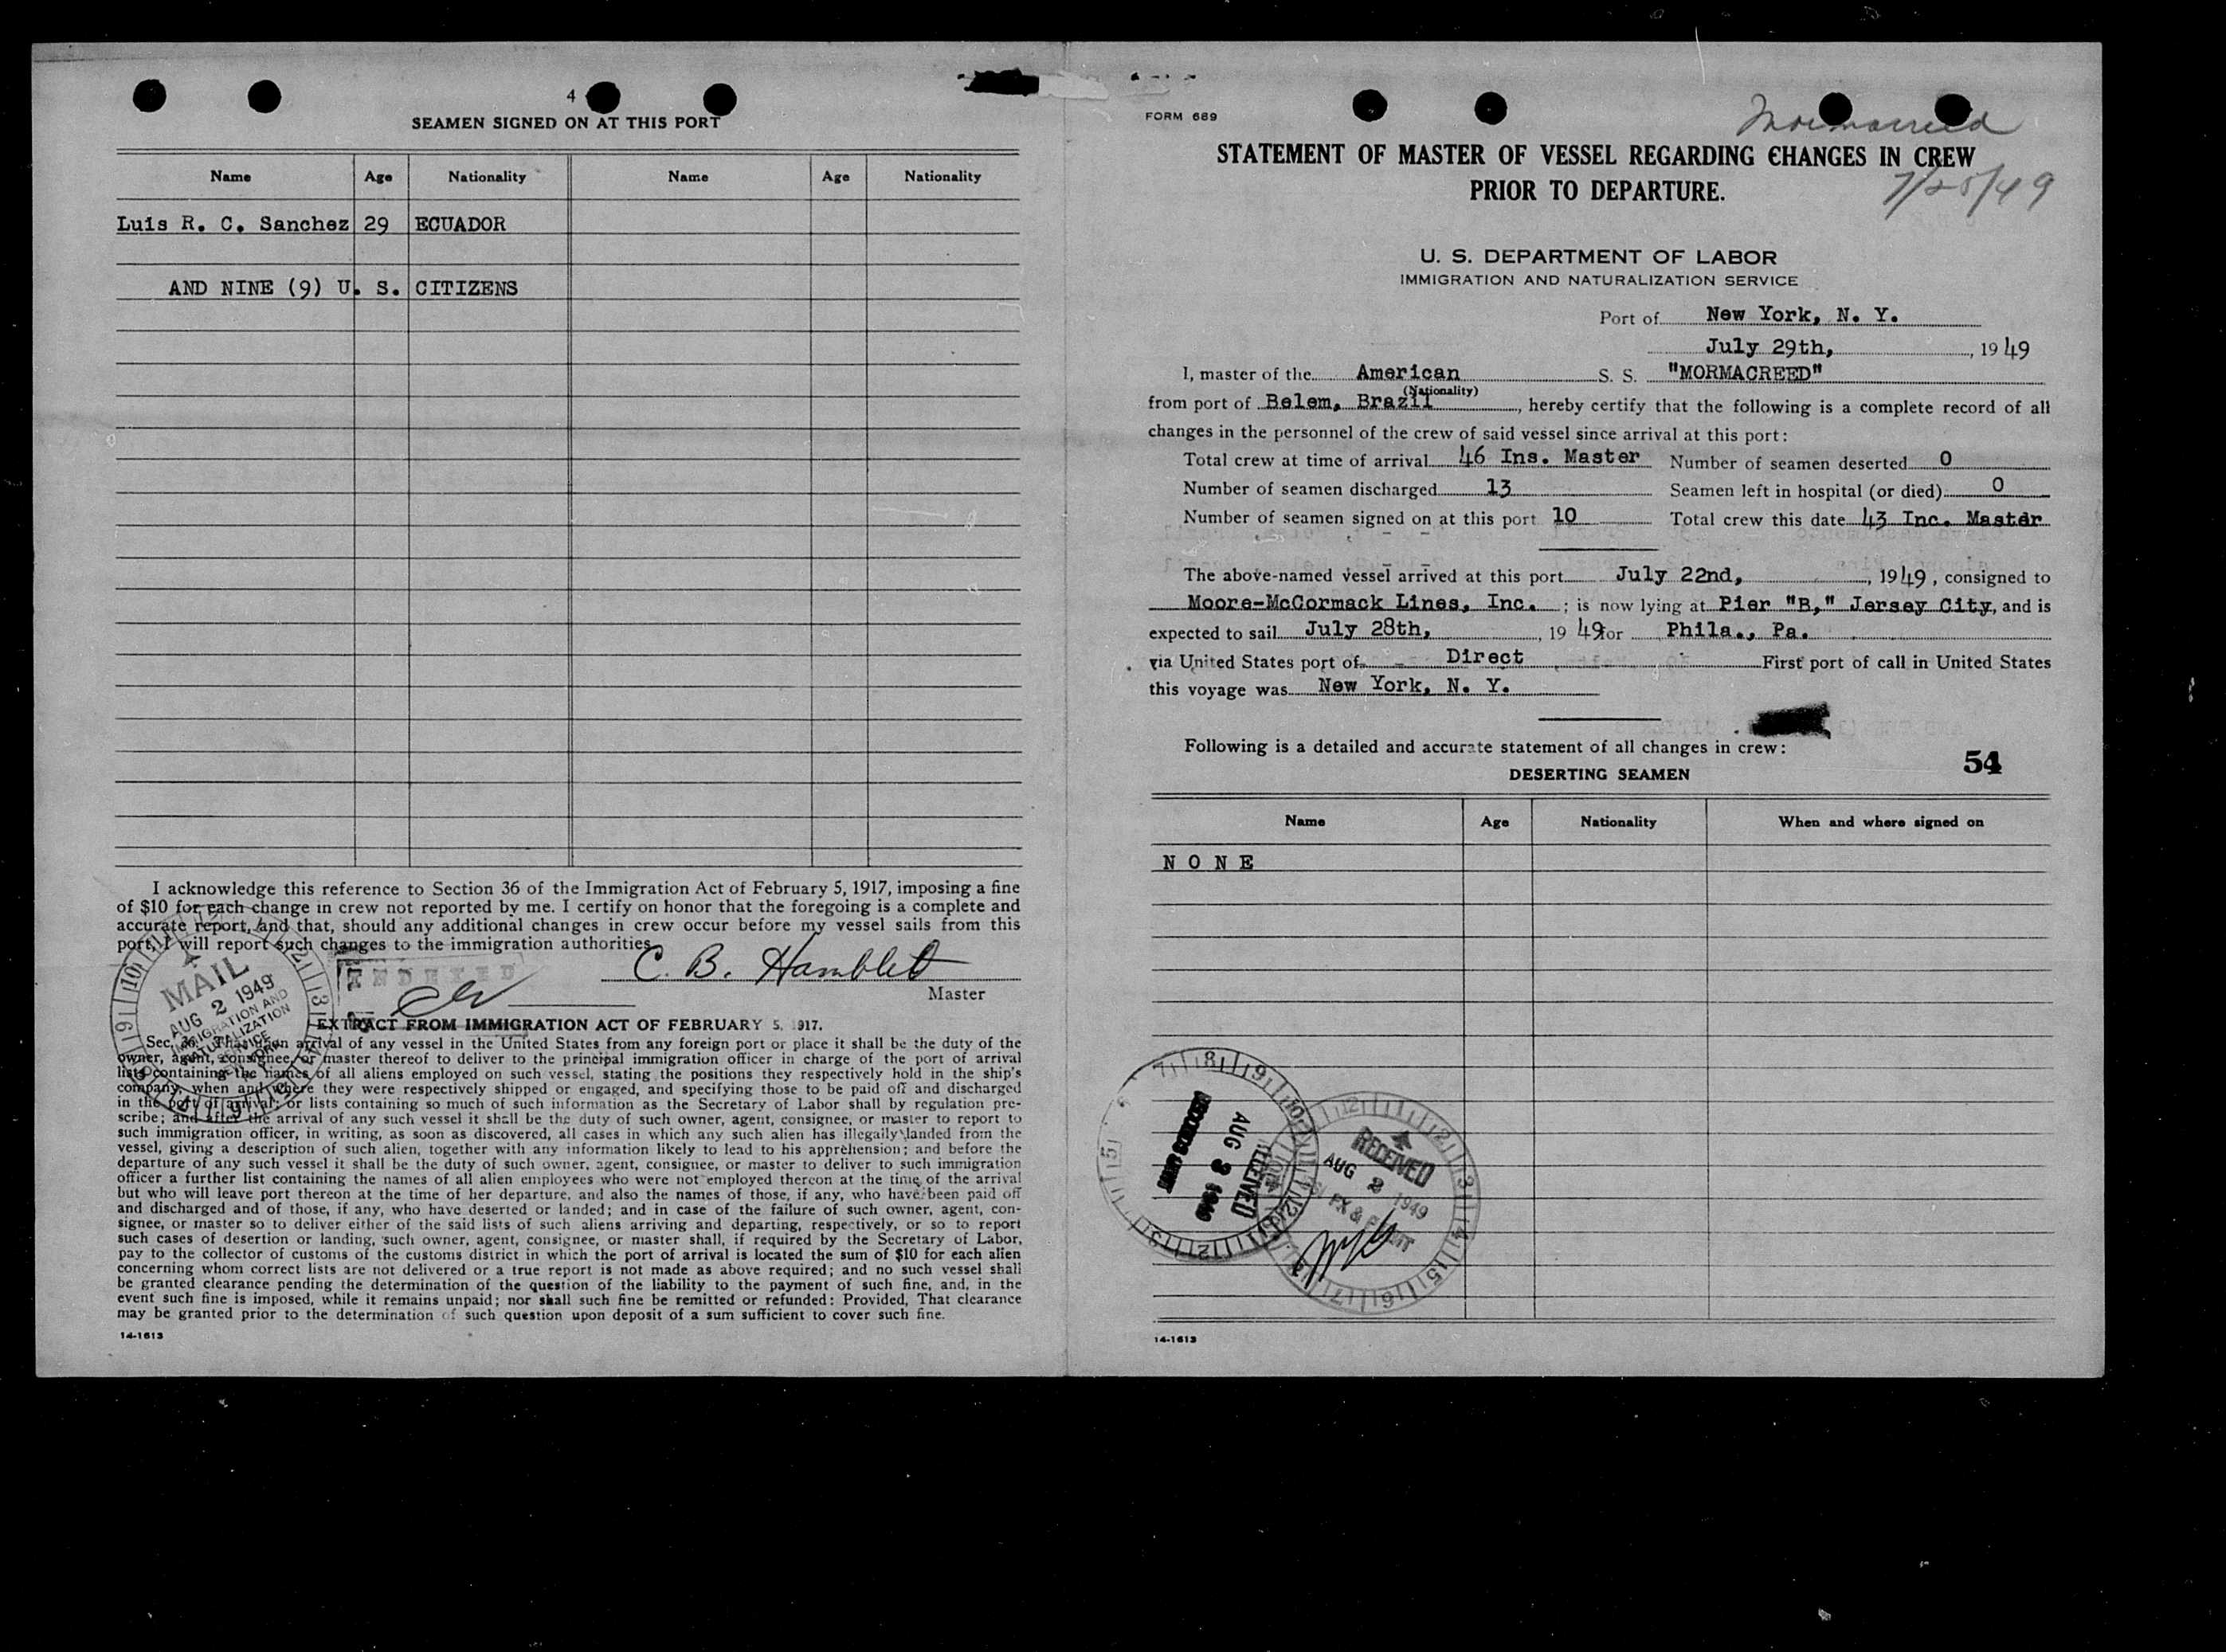 4
SEAMEN SIGNED ON AT THIS PORT
Name Age Nationality Name Age Nationality
Luis R. C. Sanchez 29 ECUADOR
AND NINE (9) U. S. CITIZENS
I acknowledge this reference to Section 36 of the Immigration Act of February 5, 1917, imposing a fine
of $10 for each change in crew not reported by me. I certify on honor that the foregoing is a complete and
accurate report, and that, should any additional changes in crew occur before my vessel sails from this
port, I will report such changes to the immigration authorities.
C. B. Hamblet
Master
INDEXED
MAIL
AUG 2 1949
IMMIGRATION AND
NATURALIZATION
SERVICE
EXTRACT FROM IMMIGRATION ACT OF FEBRUARY 5, 1917.
Sec. 36. That upon arrival of any vessel in the United States from any foreign port or place it shall be the duty of the
owner, agent, consignee, or master thereof to deliver to the principal immigration officer in charge of the port of arrival
lists containing the names of all aliens employed on such vessel, stating the positions they respectively hold in the ship's
company, when and where they were respectively shipped or engaged, and specifying those to be paid off and discharged
in the port of arrival; or lists containing so much of such information as the Secretary of Labor shall by regulation pre-
scribe; and after the arrival of any such vessel it shall be the duty of such owner, agent, consignee, or master to report to
such immigration officer, in writing, as soon as discovered, all cases in which any such alien has illegally landed from the
vessel, giving a description of such alien, together with any information likely to lead to his apprehension; and before the
departure of any such vessel it shall be the duty of such owner, agent, consignee, or master to deliver to such immigration
officer a further list containing the names of all alien employees who were not employed thereon at the time of the arrival
but who will leave port thereon at the time of her departure, and also the names of those, if any, who have been paid off
and discharged and of those, if any, who have deserted or landed; and in case of the failure of such owner, agent, con-
signee, or master so to deliver either of the said lists of such aliens arriving and departing, respectively, or so to report
such cases of desertion or landing, such owner, agent, consignee, or master shall, if required by the Secretary of Labor,
pay to the collector of customs of the customs district in which the port of arrival is located the sum of $10 for each alien
concerning whom correct lists are not delivered or a true report is not made as above required; and no such vessel shall
be granted clearance pending the determination of the question of the liability to the payment of such fine, and, in the
event such fine is imposed, while it remains unpaid; nor shall such fine be remitted or refunded: Provided, That clearance
may be granted prior to the determination of such question upon deposit of a sum sufficient to cover such fine.
14-1613
FORM 689
Mormacreed
7/25/49
STATEMENT OF MASTER OF VESSEL REGARDING CHANGES IN CREW
PRIOR TO DEPARTURE.
U. S. DEPARTMENT OF LABOR
IMMIGRATION AND NATURALIZATION SERVICE
Port of New York, N. Y.
July 29th, , 1949
I, master of the American S. S. "MORMACREED"
(Nationality)
from port of Belem, Brazil , hereby certify that the following is a complete record of all
changes in the personnel of the crew of said vessel since arrival at this port:
Total crew at time of arrival 46 Ins. Master Number of seamen deserted 0
Number of seamen discharged 13 Seamen left in hospital (or died) 0
Number of seamen signed on at this port 10 Total crew this date 43 Inc. Master
The above-named vessel arrived at this port July 22nd, , 1949, consigned to
Moore-McCormack Lines, Inc. ; is now lying at Pier "B," Jersey City, and is
expected to sail July 28th, , 1949 for Phila., Pa.
via United States port of Direct First port of call in United States
this voyage was New York, N. Y.
Following is a detailed and accurate statement of all changes in crew:
54
DESERTING SEAMEN
Name Age Nationality When and where signed on
N O N E
RECEIVED
AUG 3 1949
RECEIVED
AUG 2 1949
14-1613